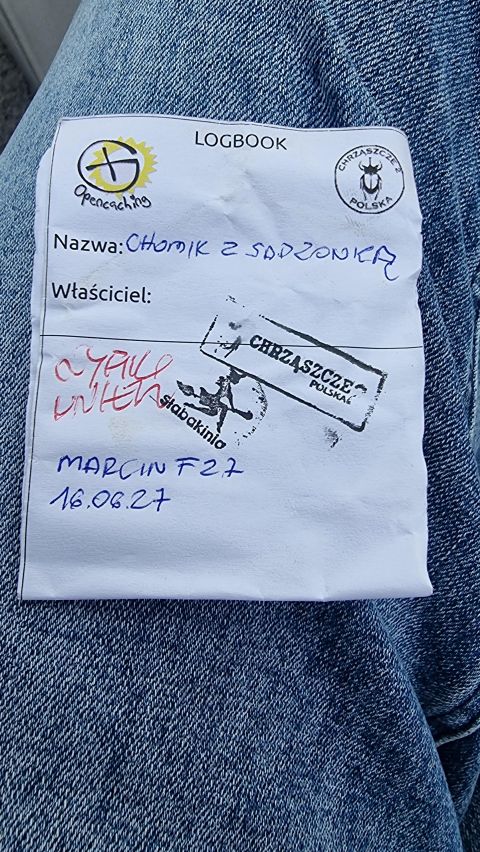 LOGBOOK
Opencaching
CHRZĄSZCZE Z
POLSKA
Nazwa: CHOMIK Z SADZONKĄ
Właściciel:
CHRZĄSZCZE
POLSKA
slabakinia
MARCIN F27
16.06.27